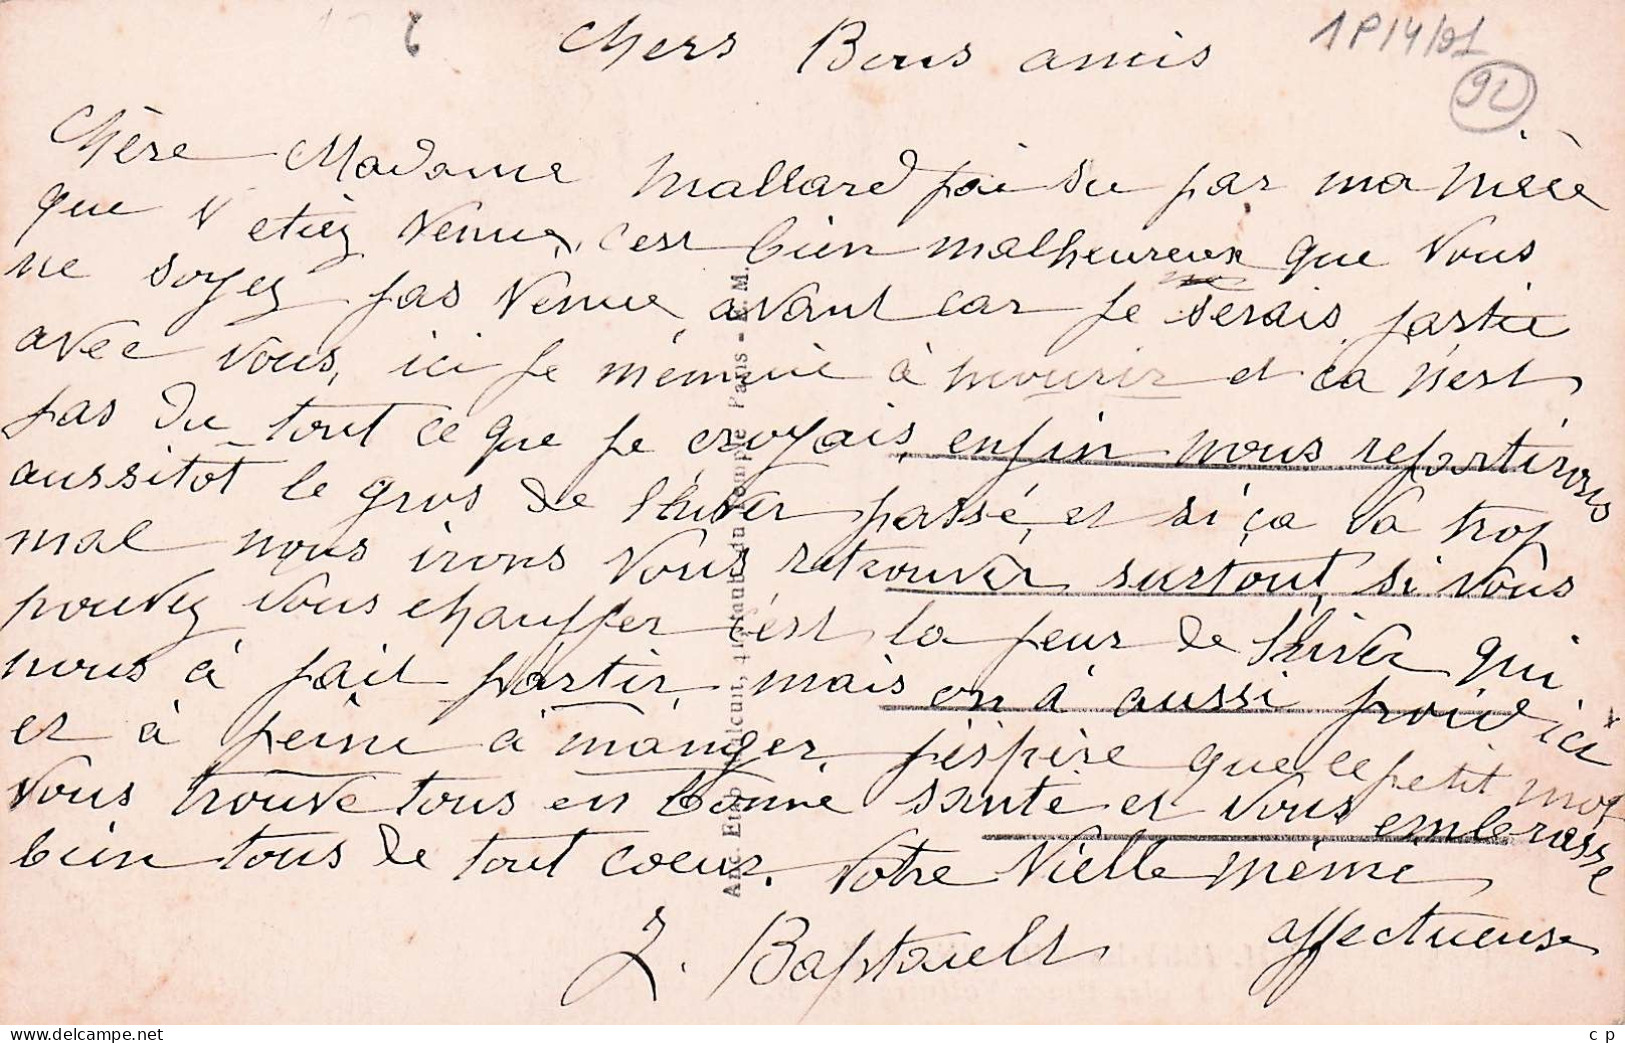 6
Chers Bons amis
1P/4/01
92
Chère Madame Mallard j'ai su par ma nièce
que v etiez venue, c'est bien malheureux que vous
ne soyez pas venue avant car je serais partie
avec vous, ici je m'ennuie à mourir et ca n'est
pas du tout ce que je croyais, enfin nous repartirons
aussitot le gros de l'hiver passé, et si ça va trop
mal nous irons vous retrouver surtout, si vous
pouvez vous chauffer c'est la peur de l'hiver qui
nous à fait partir, mais on à aussi froid ici
et à peine à manger, j'espère que ce petit mot
vous trouve tous en bonne santé et vous embrasse
bien tous de tout coeur. Votre vielle mémé
affectueuse
J. Baptault
Anc. Etab. Malcuit, 41 Faub. du Temple Paris - E.M.
www.delcampe.net
c p